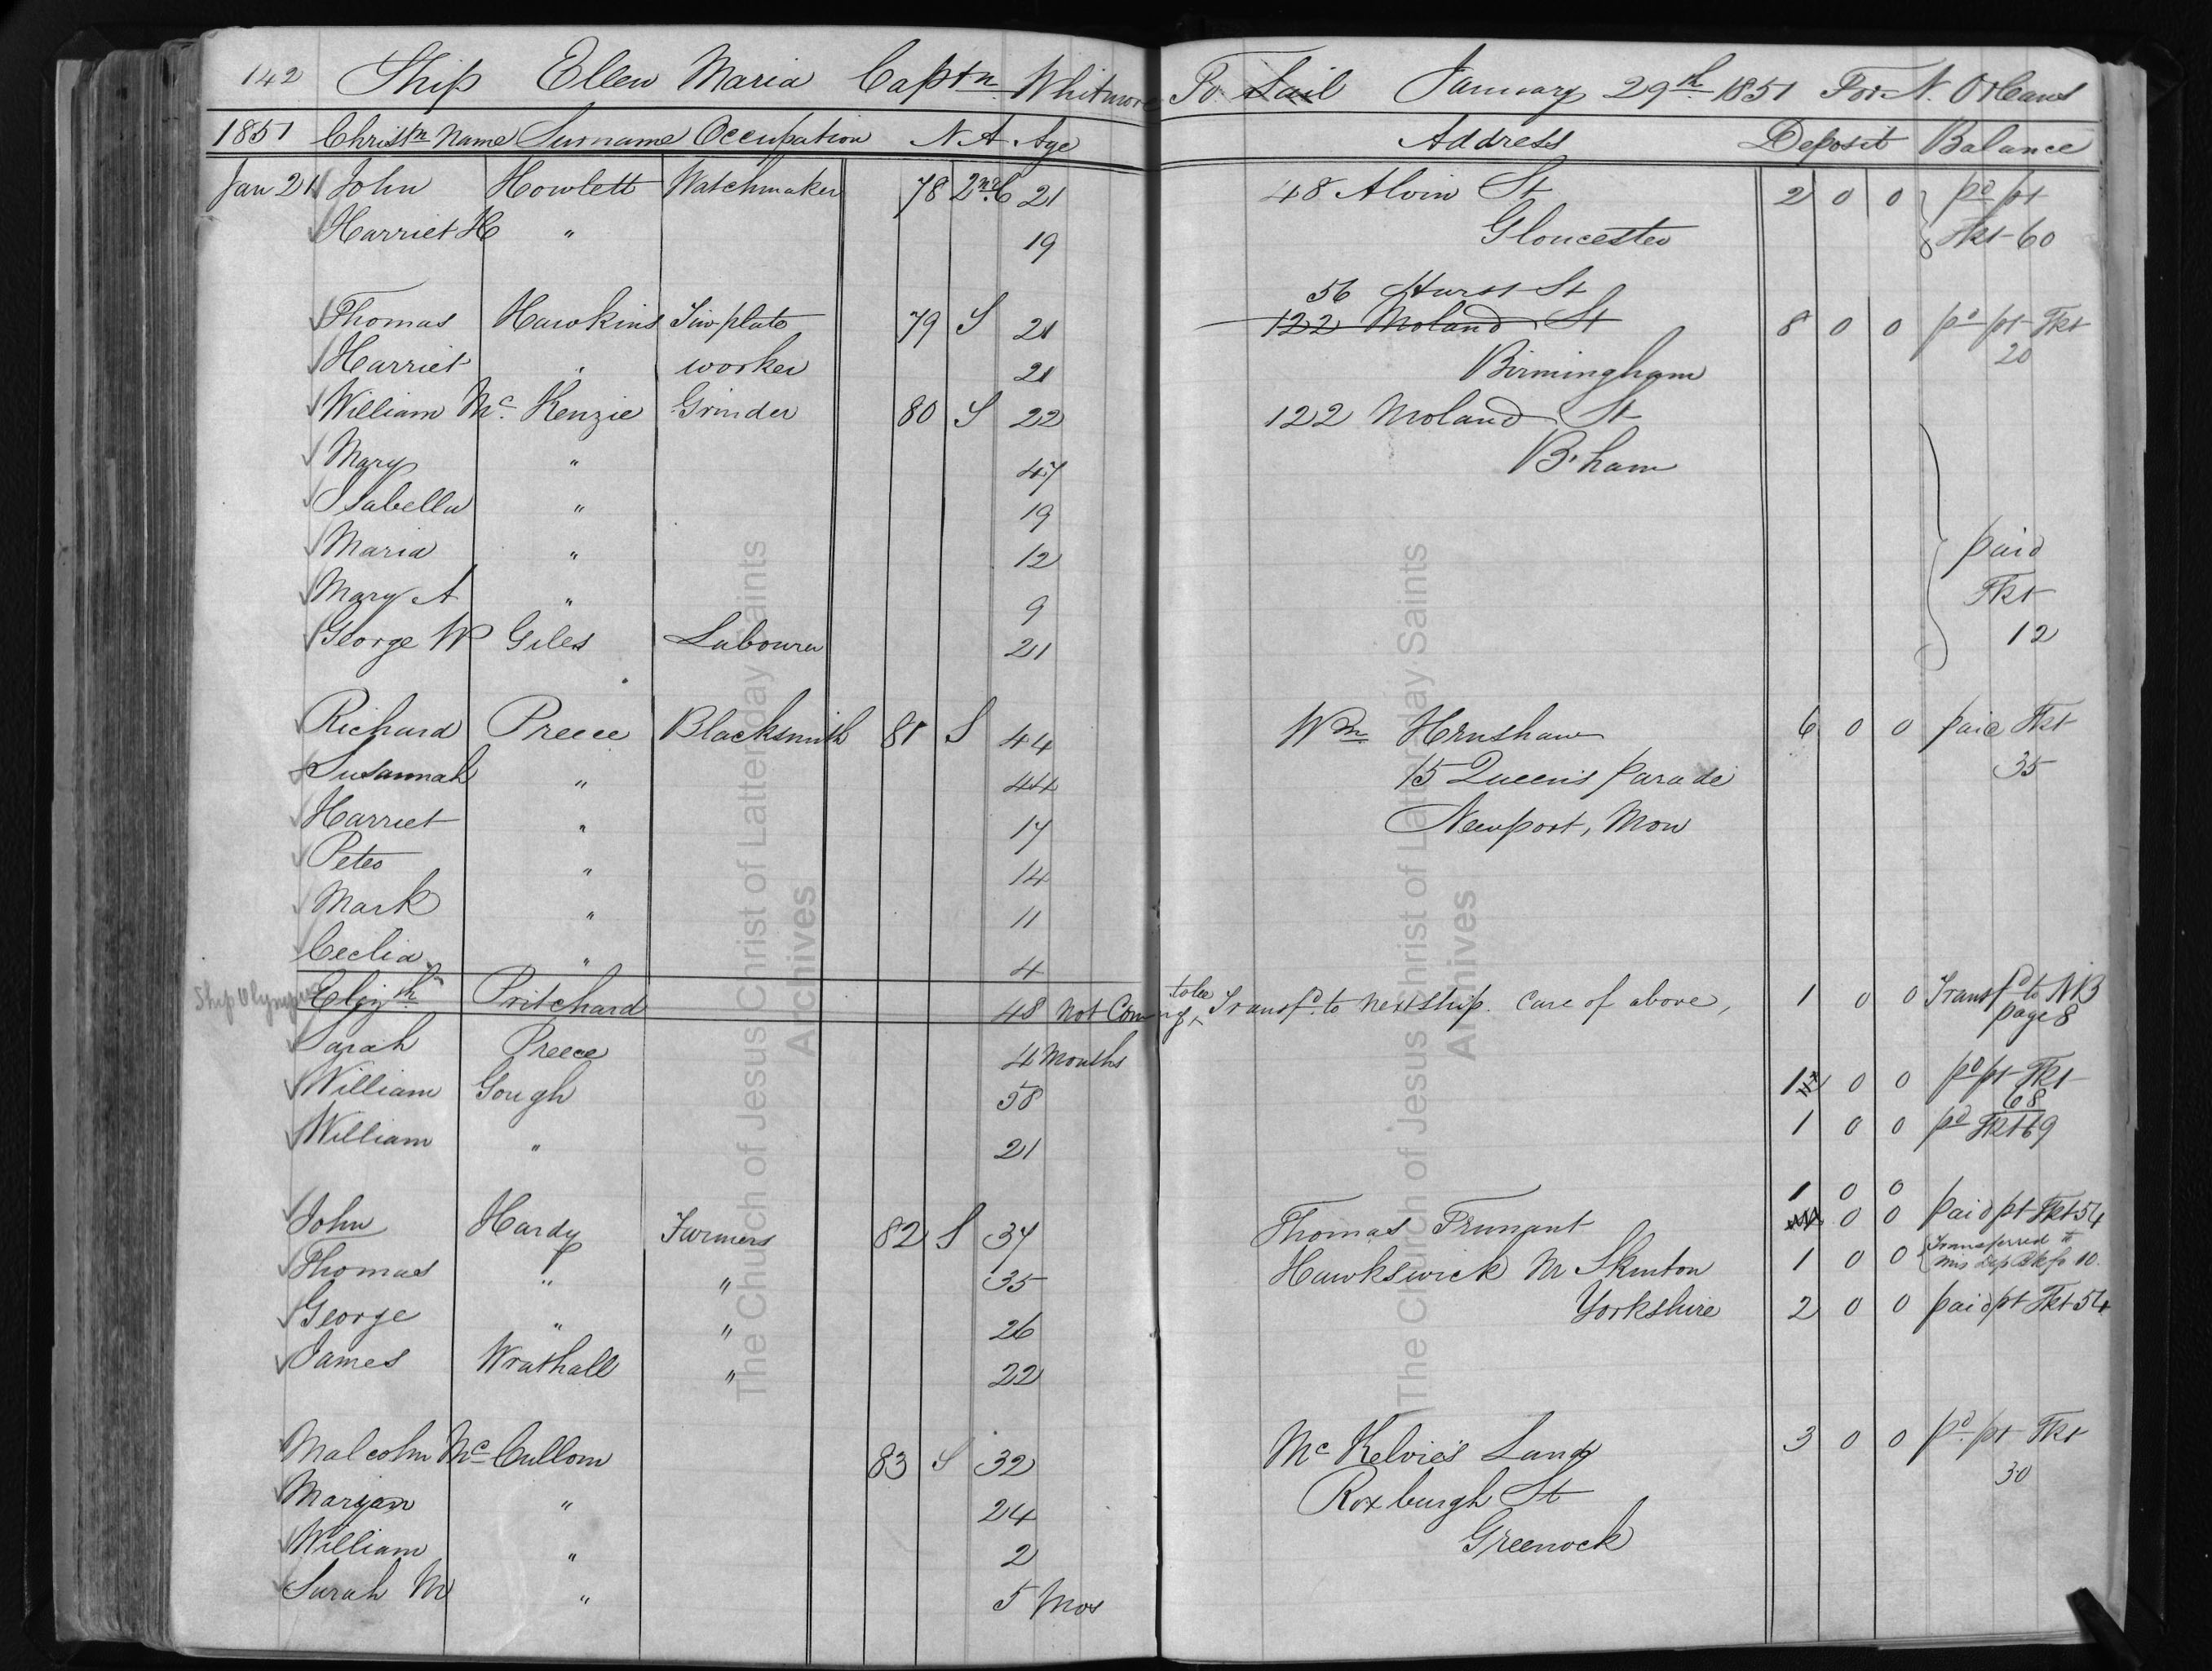 142 Ship Ellen Maria Captn Whitmore To Sail January 29th 1851 For N. Orleans
1851 Christn Name Surname Occupation N A Age Address Deposit Balance
Jan 21 John Howlett Watchmaker 78 2nd C 21 48 Alvin St 2 0 0 pd pt
Harriet H " 19 Gloucester Tkt 60
56 Hurst St
Thomas Hawkins Tin plate 79 S 21 122 Moland St 8 0 0 pd pt Tkt
Harriet " worker 21 Birmingham 20
William Mc Kenzie Grinder 80 S 22 122 Moland St
Mary " 47 B'ham
Isabella " 19
Maria " 12 paid
Mary A " 9 Tkt
George W Giles Labourer 21 12
Richard Preece Blacksmith 81 S 44 Wm Hrnshaw 6 0 0 paid Tkt
Susannah " 44 15 Queen's Parade 35
Harriet " 17 Newport, Mon
Peter " 14
Mark " 11
Cecelia " 4
Ship Olympus Elizth Pritchard 48 Not Coming to be Transfd to next ship. Care of above, 1 0 0 Transfd to NB
page 8
Sarah Preece 4 Months
William Gough 58 1 0 0 pd pt Tkt
68
William " 21 1 0 0 pd Tkt 69
1 0 0
John Hardy Farmers 82 S 34 Thomas 0 0 paid pt Tkt 54
Thomas " " 35 Hawkswick Nr Skinton 1 0 0 Transferred to
Mis Dep Bk fo 10.
George " " 26 Yorkshire 2 0 0 paid pt Tkt 54
James Wrathall " 22
Malcolm Mc Cullom 83 S 32 Mc Kelvie's Land 3 0 0 pd pt Tkt
Marian " 24 Roxburgh St 30
William " 2 Greenock
Sarah M " 5 Mos
The Church of Jesus Christ of Latter-day Saints
Archives
The Church of Jesus Christ of Latter-day Saints
Archives